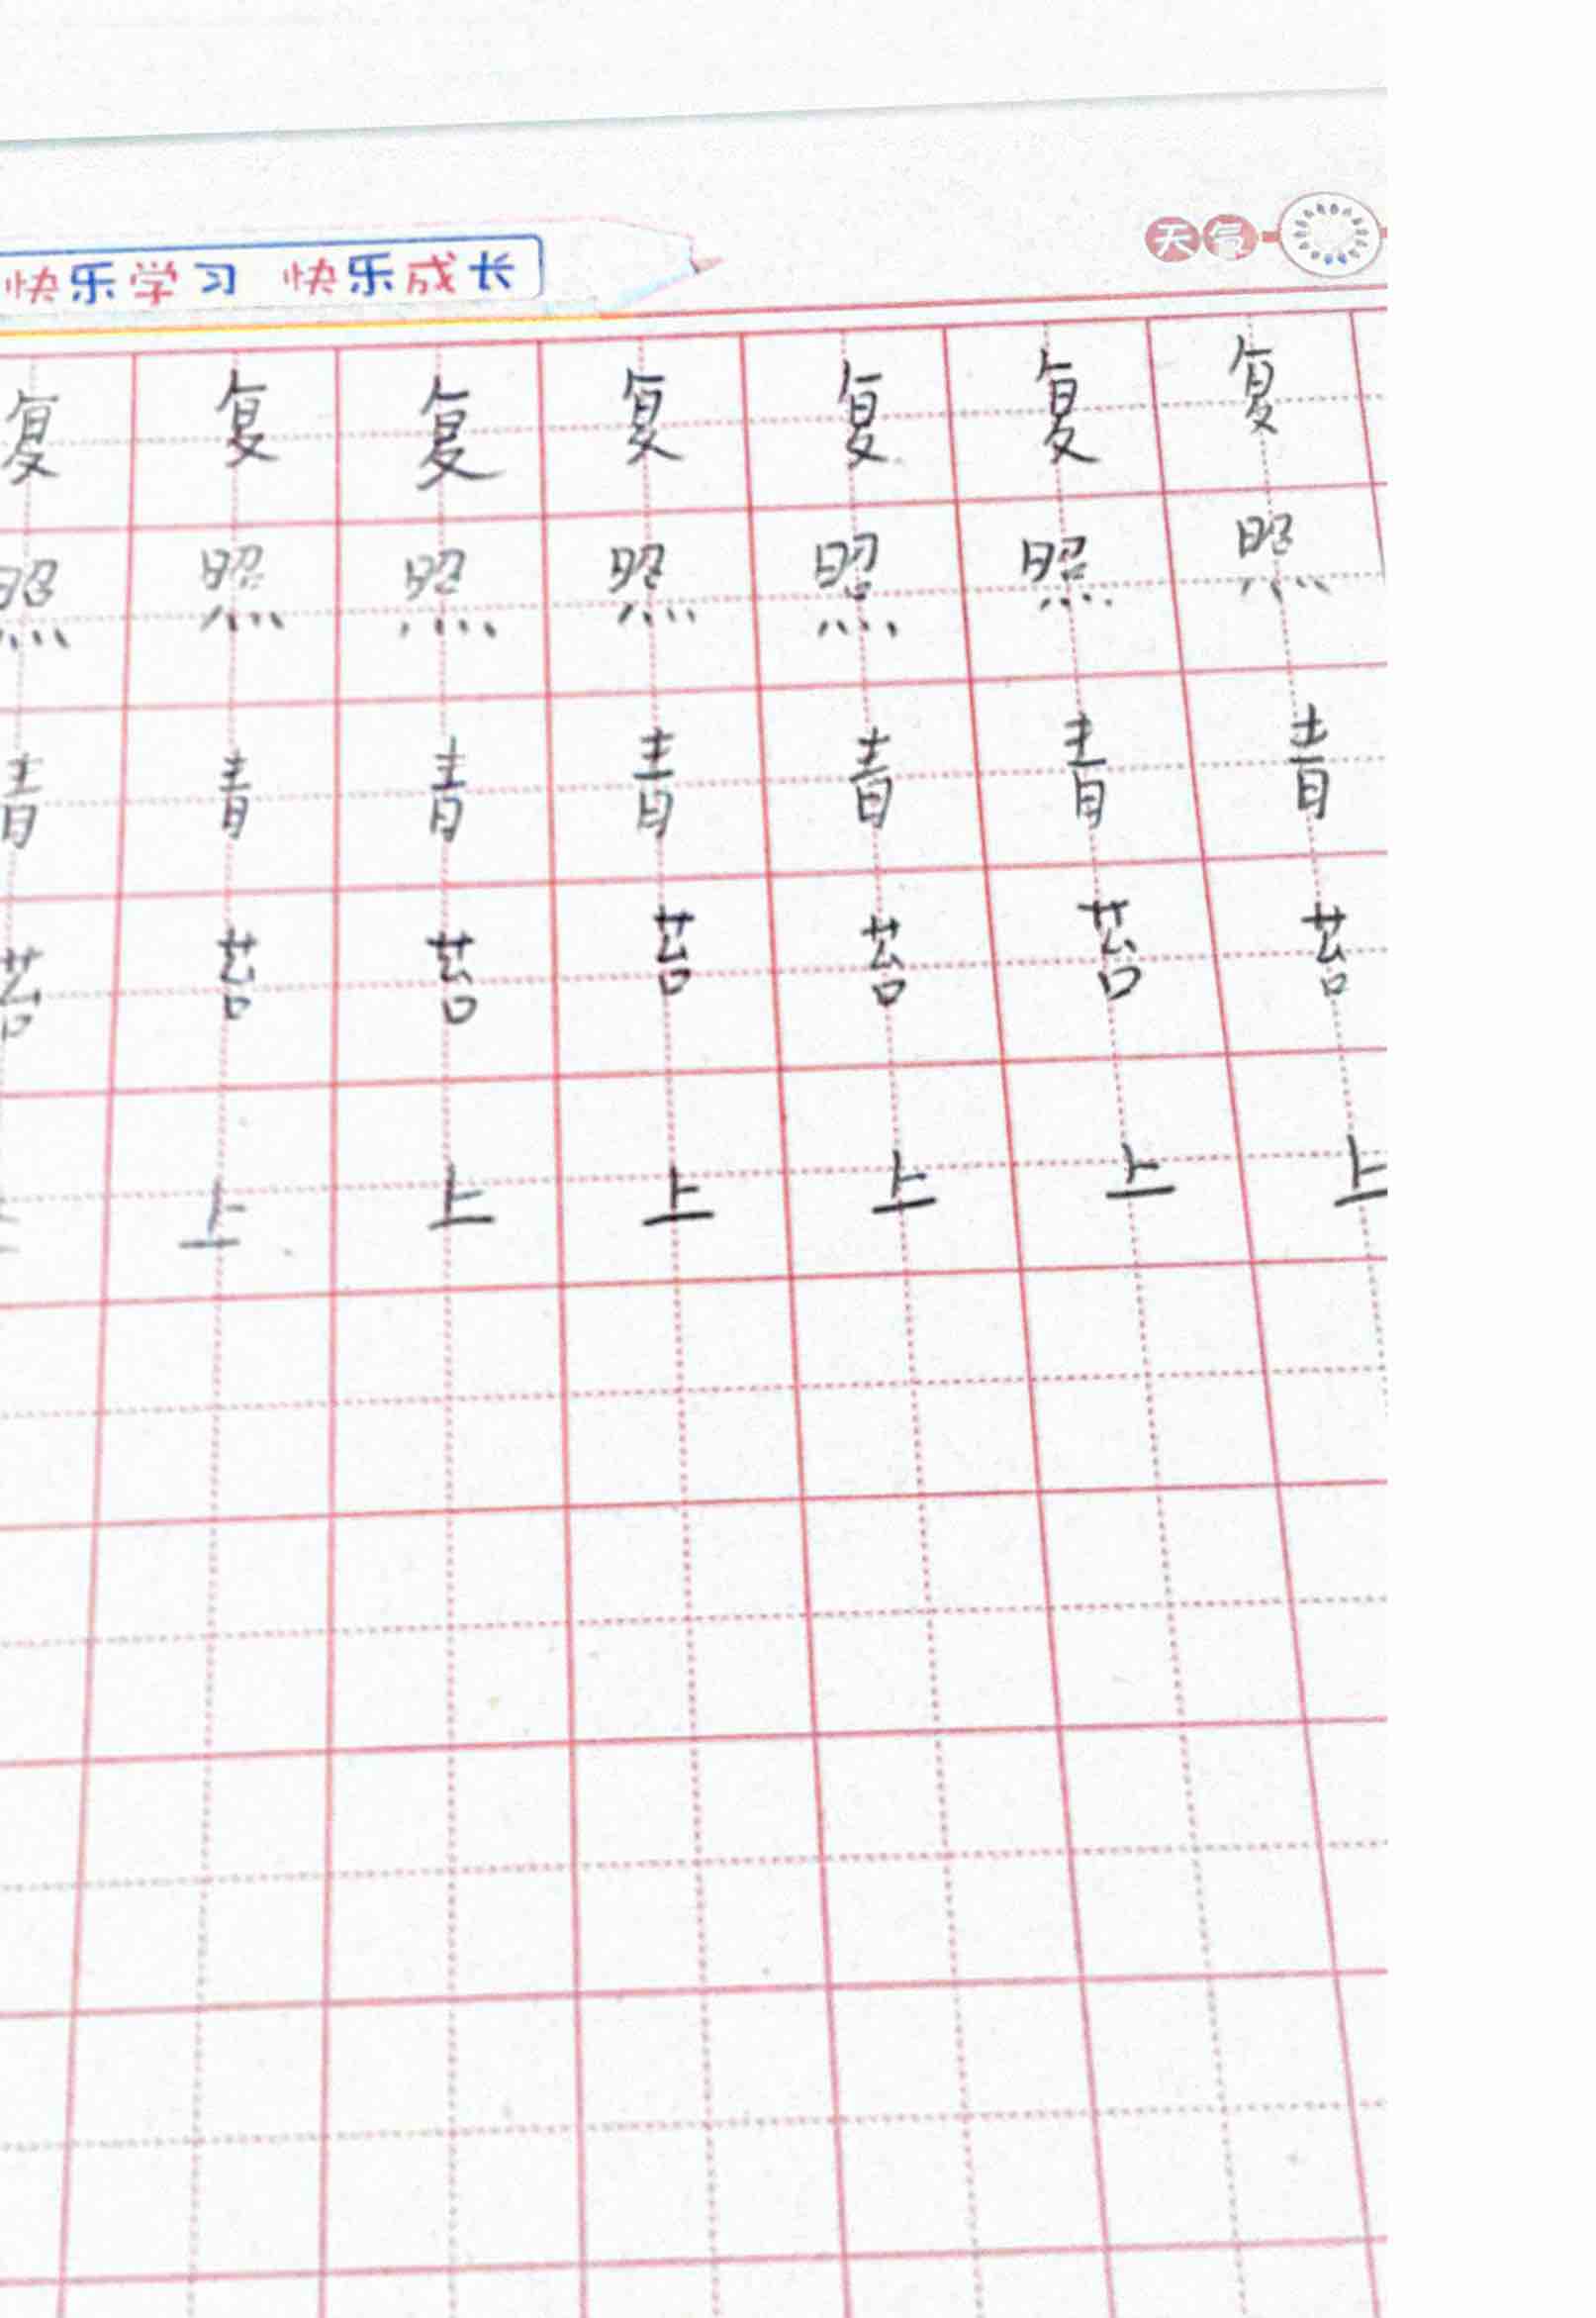 快乐学习 快乐成长
天气
复 复 复 复 复 复 复
照 照 照 照 照 照 照
青 青 青 青 青 青 青
苔 苔 苔 苔 苔 苔 苔
上 上 上 上 上 上